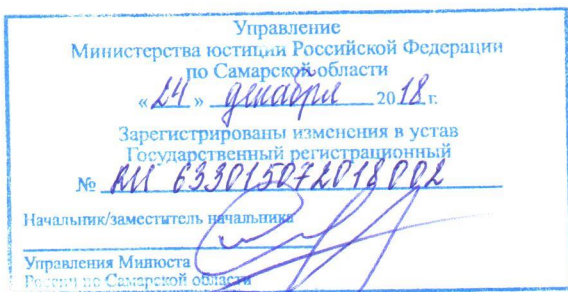 Управление
Министерства юстиции Российской Федерации
по Самарской области
«24» декабря 2018 г.
Зарегистрированы изменения в устав
Государственный регистрационный
№ RU 633015072018002
Начальник/заместитель начальника
Управления Минюста
России по Самарской области